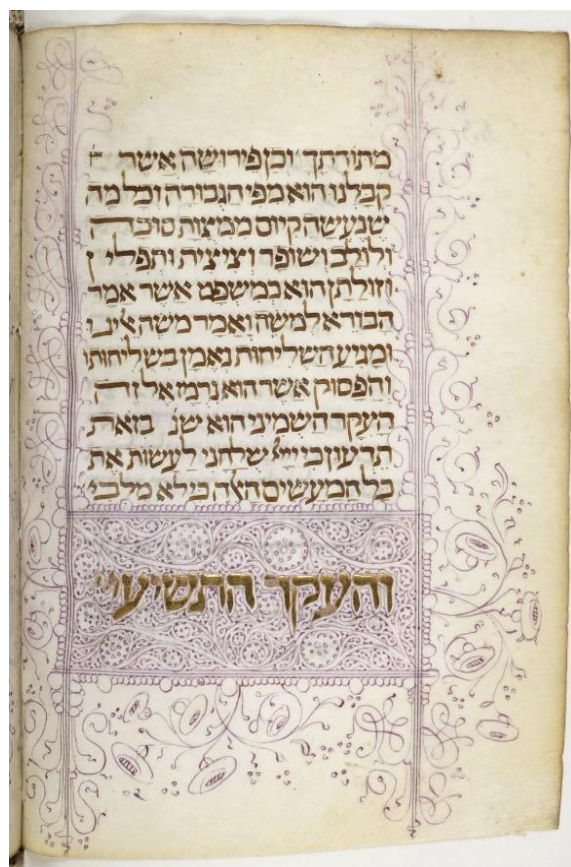 מתורתך וכן פירושה אשר
קבלנו הוא מפי הגבורה וכל מה
שנעשה היום ממצות סוכה
ולולב ושופר וציצית ותפלין
וזולתן הוא כמשפט אשר אמר
הבורא למשה ואמר משה אלינו
ומגיע השליחות נאמן בשליחותו
והפסוק אשר הוא נרמז אל זה
העקר השמיני הוא שנ׳ בזאת
תדעון כי ייי שלחני לעשות את
כל המעשים האלה כי לא מלבי
והעקר התשיעי